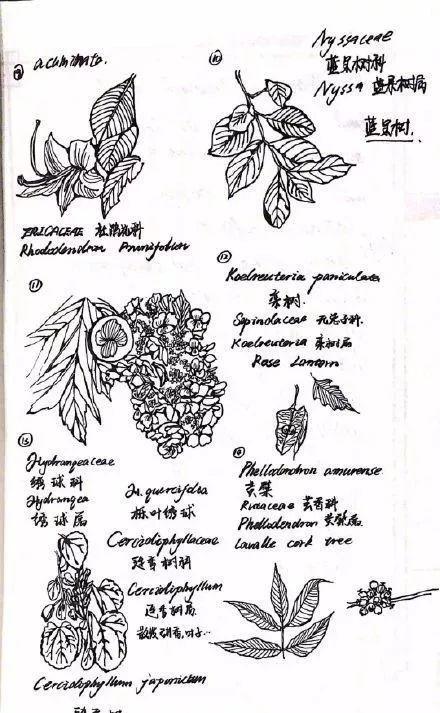 ⑨ acuminata.
⑩
Nyssaceae
蓝果树科
Nyssa 蓝果树属
蓝果树.
ERICACEAE 杜鹃花科
Rhododendron Prunifolium
⑪
⑫
Koelreuteria paniculata
栾树.
Sapindaceae 无患子科.
Koelreuteria 栾树属
Rose Lantern
⑬
Hydrangeaceae
绣球科
Hydrangea
绣球属
H. quercifolia
栎叶绣球
Cercidiphyllaceae
连香树科
Cercidiphyllum
连香树属
Cercidiphyllum japonicum
Phellodendron amurense
黄檗
Rutaceae 芸香科
Phellodendron 黄檗属.
Lavalle cork tree